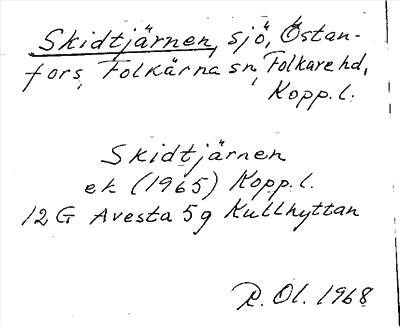 Skidtjärnen, sjö, Östan-
fors, Folkärna sn, Folkare hd,
Kopp. l.
Skidtjärnen
ek (1965) Kopp. l.
12 G Avesta 5 g Kullhyttan
R. Ol. 1968